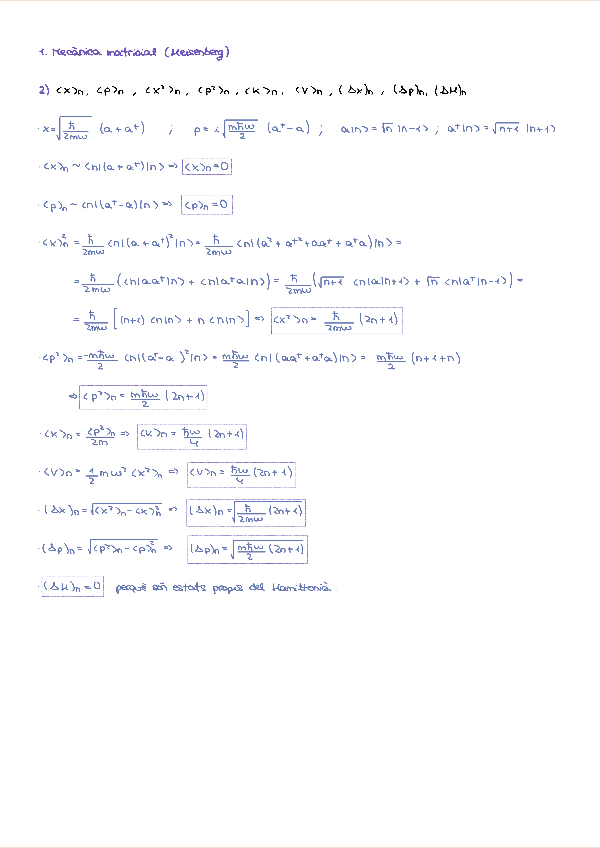 1. Mecànica matricial (Heisenberg)
2) <x>n, <p>n, <x²>n, <p²>n, <K>n, <V>n, (Δx)n, (Δp)n, (ΔH)n
· x = √(ħ/2mω) (a + a†) ; p = i √(mħω/2) (a† - a) ; a|n> = √n |n-1> ; a†|n> = √(n+1) |n+1>
· <x>n ~ <n|(a + a†)|n> ⇒ <x>n = 0
· <p>n ~ <n|(a† - a)|n> ⇒ <p>n = 0
· <x>²n = ħ/2mω <n|(a + a†)²|n> = ħ/2mω <n|(a² + a†² + aa† + a†a)|n> =
= ħ/2mω (<n|aa†|n> + <n|a†a|n>) = ħ/2mω (√(n+1) <n|a|n+1> + √n <n|a†|n-1>) =
= ħ/2mω [(n+1) <n|n> + n <n|n>] ⇒ <x²>n = ħ/2mω (2n+1)
· <p²>n = -mħω/2 <n|(a† - a)²|n> = mħω/2 <n|(aa† + a†a)|n> = mħω/2 (n+1+n)
⇒ <p²>n = mħω/2 (2n+1)
· <K>n = <p²>n/2m ⇒ <K>n = ħω/4 (2n+1)
· <V>n = 1/2 mω² <x²>n ⇒ <V>n = ħω/4 (2n+1)
· (Δx)n = √(<x²>n - <x>²n) ⇒ (Δx)n = √(ħ/2mω (2n+1))
· (Δp)n = √(<p²>n - <p>²n) ⇒ (Δp)n = √(mħω/2 (2n+1))
· (ΔH)n = 0 perquè són estats propis del Hamiltonià.